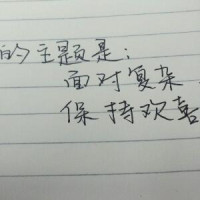 的主题是：
面对复杂
保持欢喜